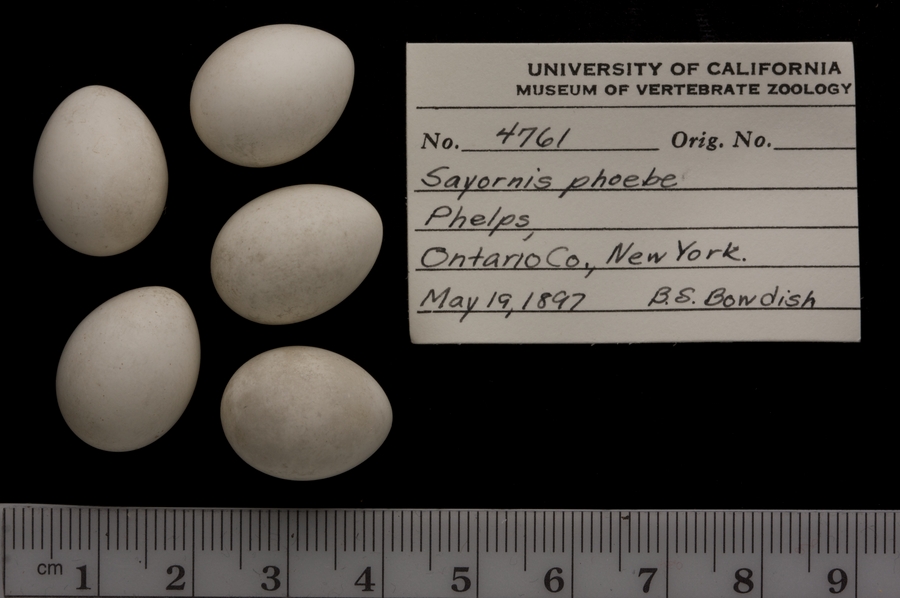 UNIVERSITY OF CALIFORNIA
MUSEUM OF VERTEBRATE ZOOLOGY
No. 4761 Orig. No.
Sayornis phoebe
Phelps,
Ontario Co., New York.
May 19, 1897 B.S. Bowdish
cm 1 2 3 4 5 6 7 8 9